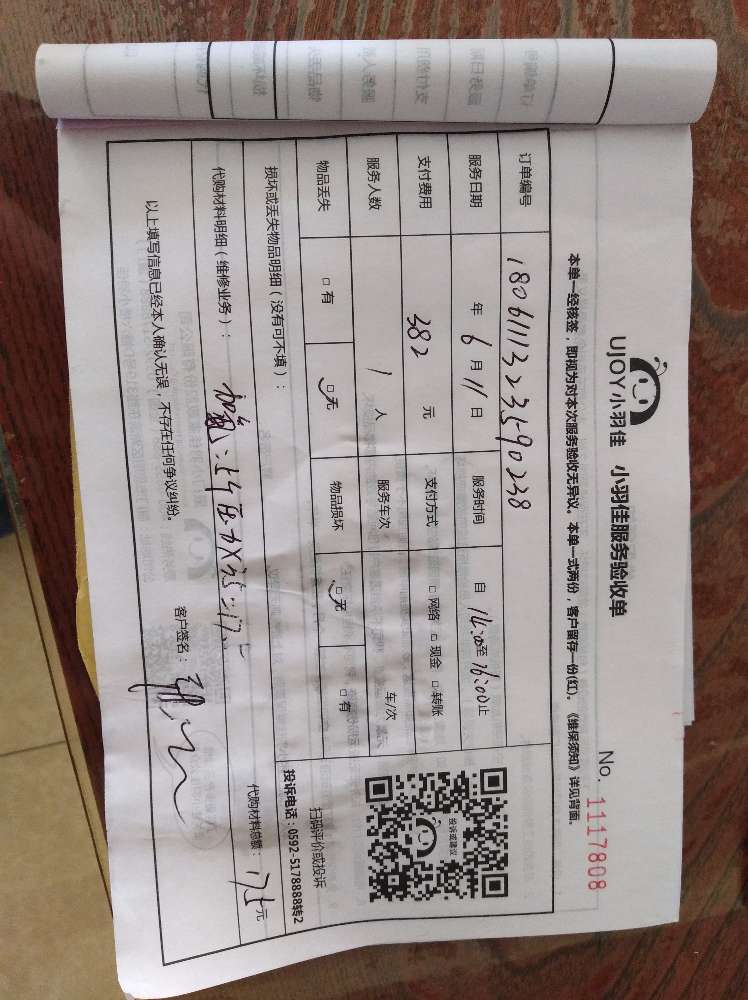 UJOY小羽佳 小羽佳服务验收单
No. 1117808
本单一经核签，即视为对本次服务验收无异议。本单一式两份，客户留存一份(红)。《维保须知》详见背面。
订单编号 1806111323590238
服务日期 年 6 月 11 日 服务时间 自 14:00至 16:00止
支付费用 382 元 支付方式 □ 网络 □ 现金 □ 转账
服务人数 1 人 服务车次 车/次
物品丢失 □ 有 □ 无 物品损坏 □ 无 □ 有
投诉或建议
扫码评价或投诉
投诉电话：0592-5178888转2
损坏或丢失物品明细（没有可不填）：
代购材料明细（维修业务）： 加氟：5个压力X35=175
代购材料总额： 175元
以上填写信息已经本人确认无误，不存在任何争议纠纷。 客户签名：